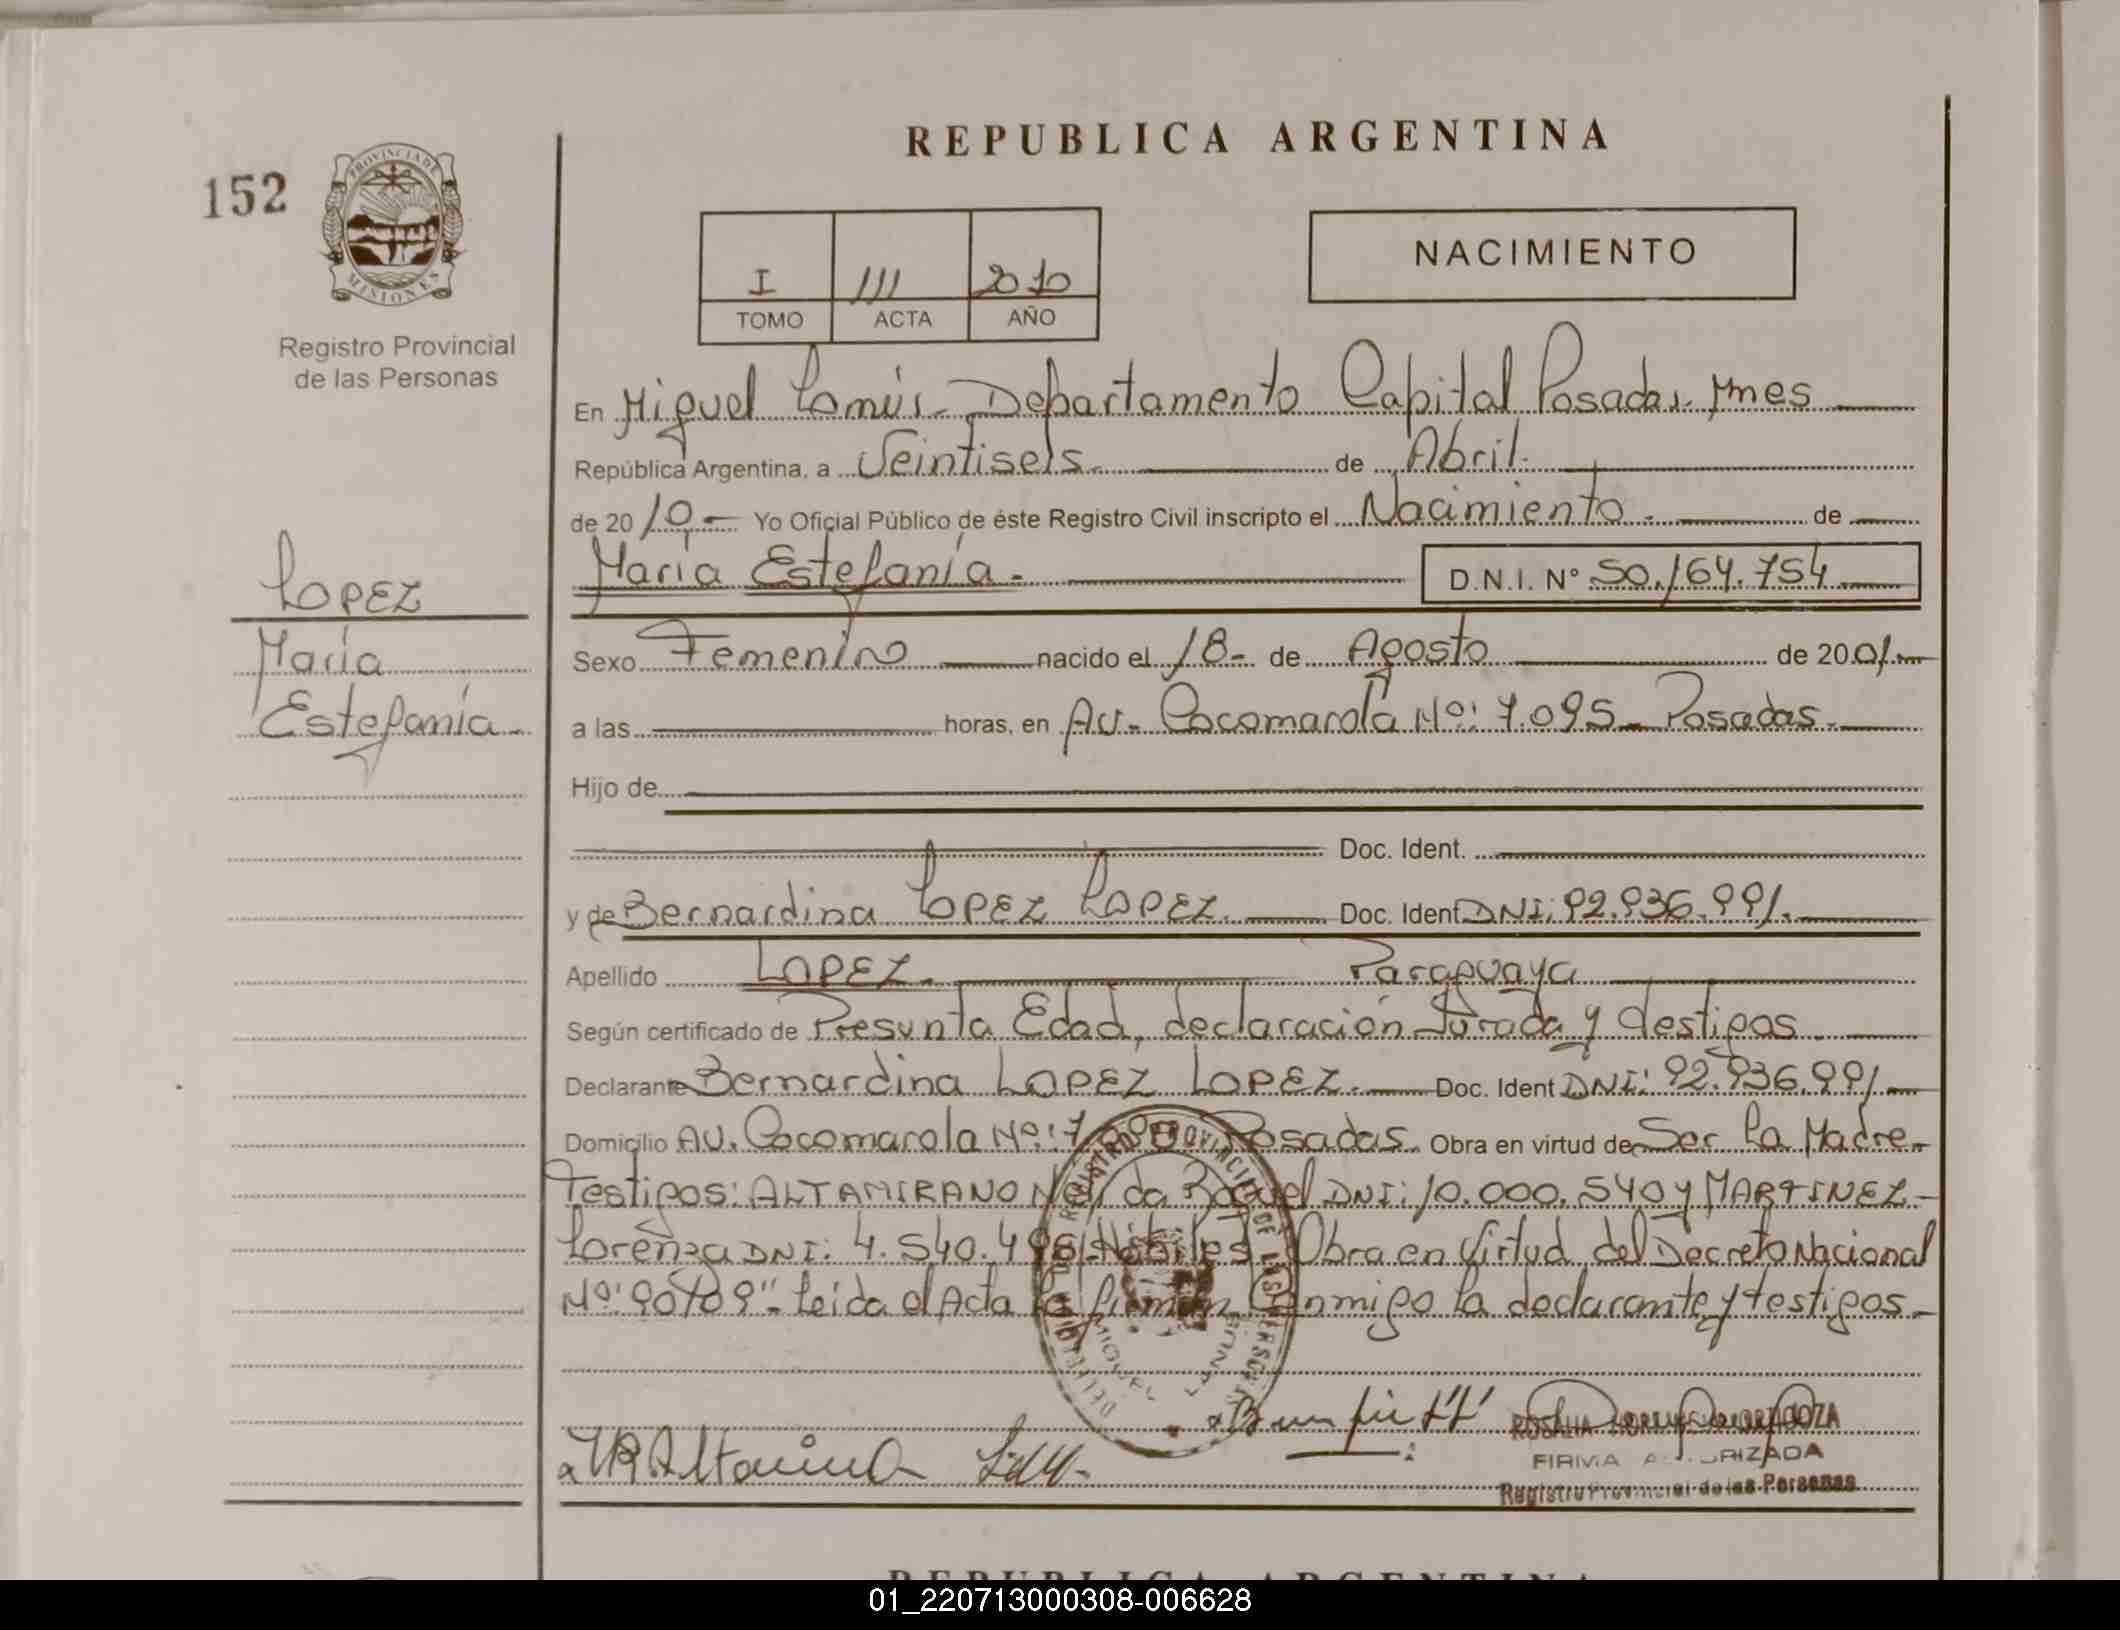 REPUBLICA ARGENTINA
152
PROVINCIA DE
MISIONES
Registro Provincial
de las Personas
NACIMIENTO
I 111 2010
TOMO ACTA AÑO
En Miguel Lanús - Departamento Capital Posadas. Mnes
República Argentina, a Veintiseis de Abril.
de 2010 Yo Oficial Público de éste Registro Civil inscripto el Nacimiento. de
María Estefanía. D.N.I. N° 50.164.754
LOPEZ
María
Estefanía.
Sexo Femenino nacido el 18- de Agosto de 2001.
a las horas, en Av. Cocomarola Nº: 7.095 - Posadas.
Hijo de
Doc. Ident.
y de Bernardina LOPEZ LOPEZ. Doc. Ident DNI: 92.936.991.
Apellido LOPEZ. Paraguaya
Según certificado de Presunta Edad, declaración Jurada y testigos
Declarante Bernardina LOPEZ LOPEZ. Doc. Ident DNI: 92.936.991
Domicilio AV. Cocomarola Nº: Posadas. Obra en virtud de Ser la Madre.
Testigos: ALTAMIRANO Raquel DNI: 10.000.540 y MARTINEZ
Lorenza DNI: 4.540.496 Hábiles. Obra en Virtud del Decreto Nacional
Nº: 90/09" Leída el Acta la firman Conmigo la declarante y testigos.
REGISTRO PROVINCIAL DE LAS PERSONAS
MIGUEL LANUS
ROSALIA
FIRMA AUTORIZADA
Registro Provincial de las Personas
REPUBLICA ARGENTINA
01_220713000308-006628